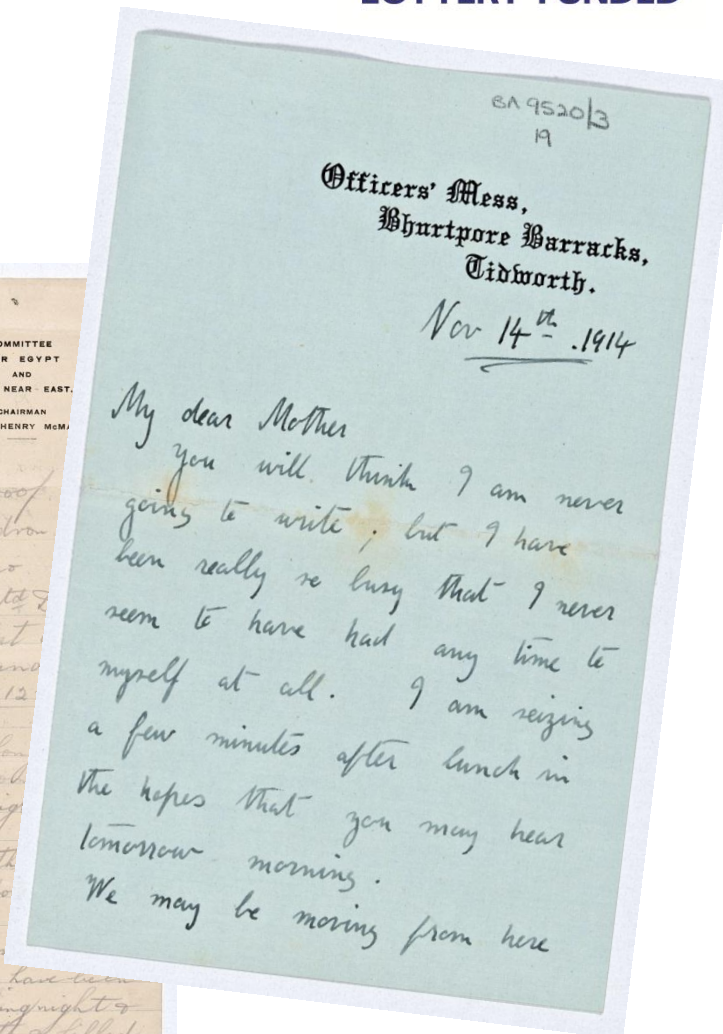 LOTTERY FUNDED
BA 9520/3
19
Officers' Mess,
Bhurtpore Barracks,
Tidworth.
Nov 14th .1914
My dear Mother
you will think I am never
going to write ; but I have
been really so busy that I never
seem to have had any time to
myself at all. I am seizing
a few minutes after lunch in
the hopes that you may hear
tomorrow morning.
We may be moving from here
OMMITTEE
R EGYPT
AND
NEAR EAST.
CHAIRMAN
HENRY McMA
12
have been
ing night &